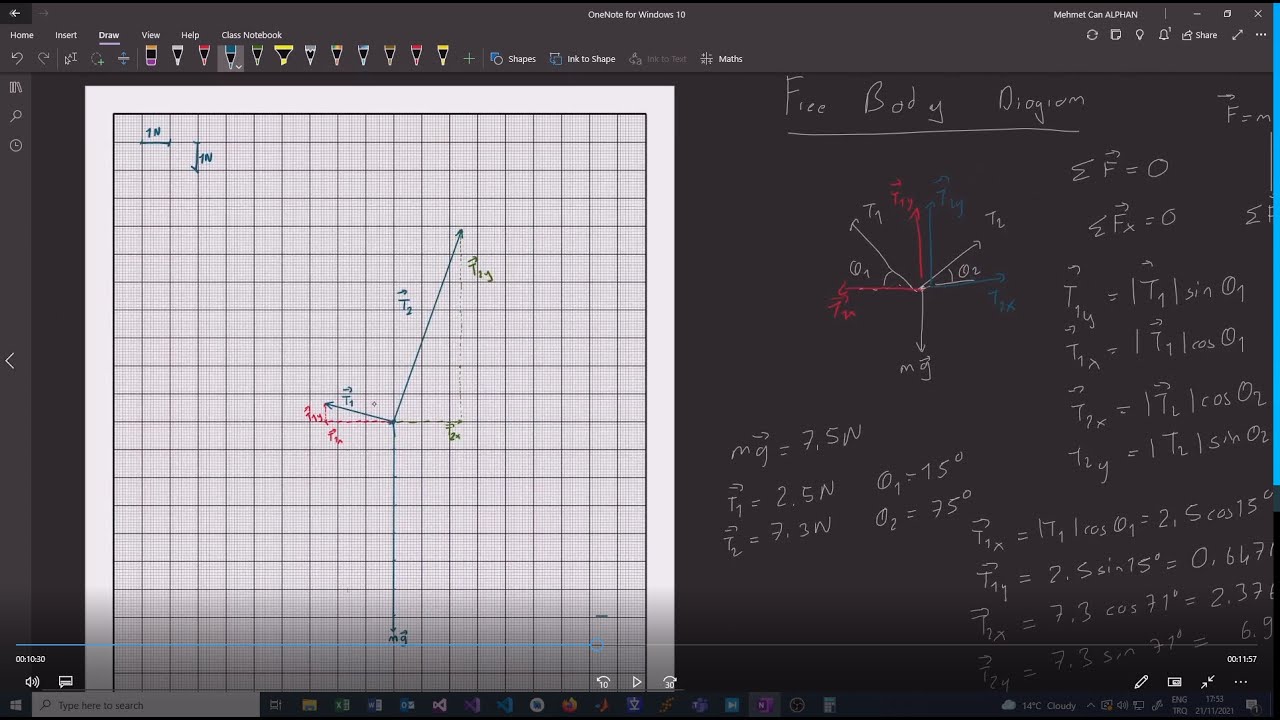 OneNote for Windows 10
Mehmet Can ALPHAN
Home Insert Draw View Help Class Notebook
Share
Shapes Ink to Shape Ink to Text Maths
1N
1N
T⃗2y
T⃗2
T⃗1
T⃗1y
T⃗1x
T⃗2x
mg⃗
Free Body Diagram
F⃗ = m
ΣF⃗ = 0
ΣF⃗x = 0
Σ F
T⃗1y T⃗2y
T1 T2
θ1 θ2
T⃗1x T2x
mg⃗
T⃗1y = |T⃗1| sin θ1
T⃗1x = |T⃗1| cos θ1
T⃗2x = |T⃗2| cos θ2
T2y = |T2| sin θ2
mg⃗ = 7.5N
T⃗1 = 2.5N θ1 = 15°
T⃗2 = 7.3N θ2 = 75°
T⃗1x = |T1| cos θ1 = 2.5 cos 15°
T⃗1y = 2.5 sin 15° = 0.647
T⃗2x = 7.3 cos 71° = 2.376
T⃗2y = 7.3 sin 71° = 6.9
00:10:30
00:11:57
10 30
Type here to search
14°C Cloudy
ENG
TRQ
17:53
21/11/2021